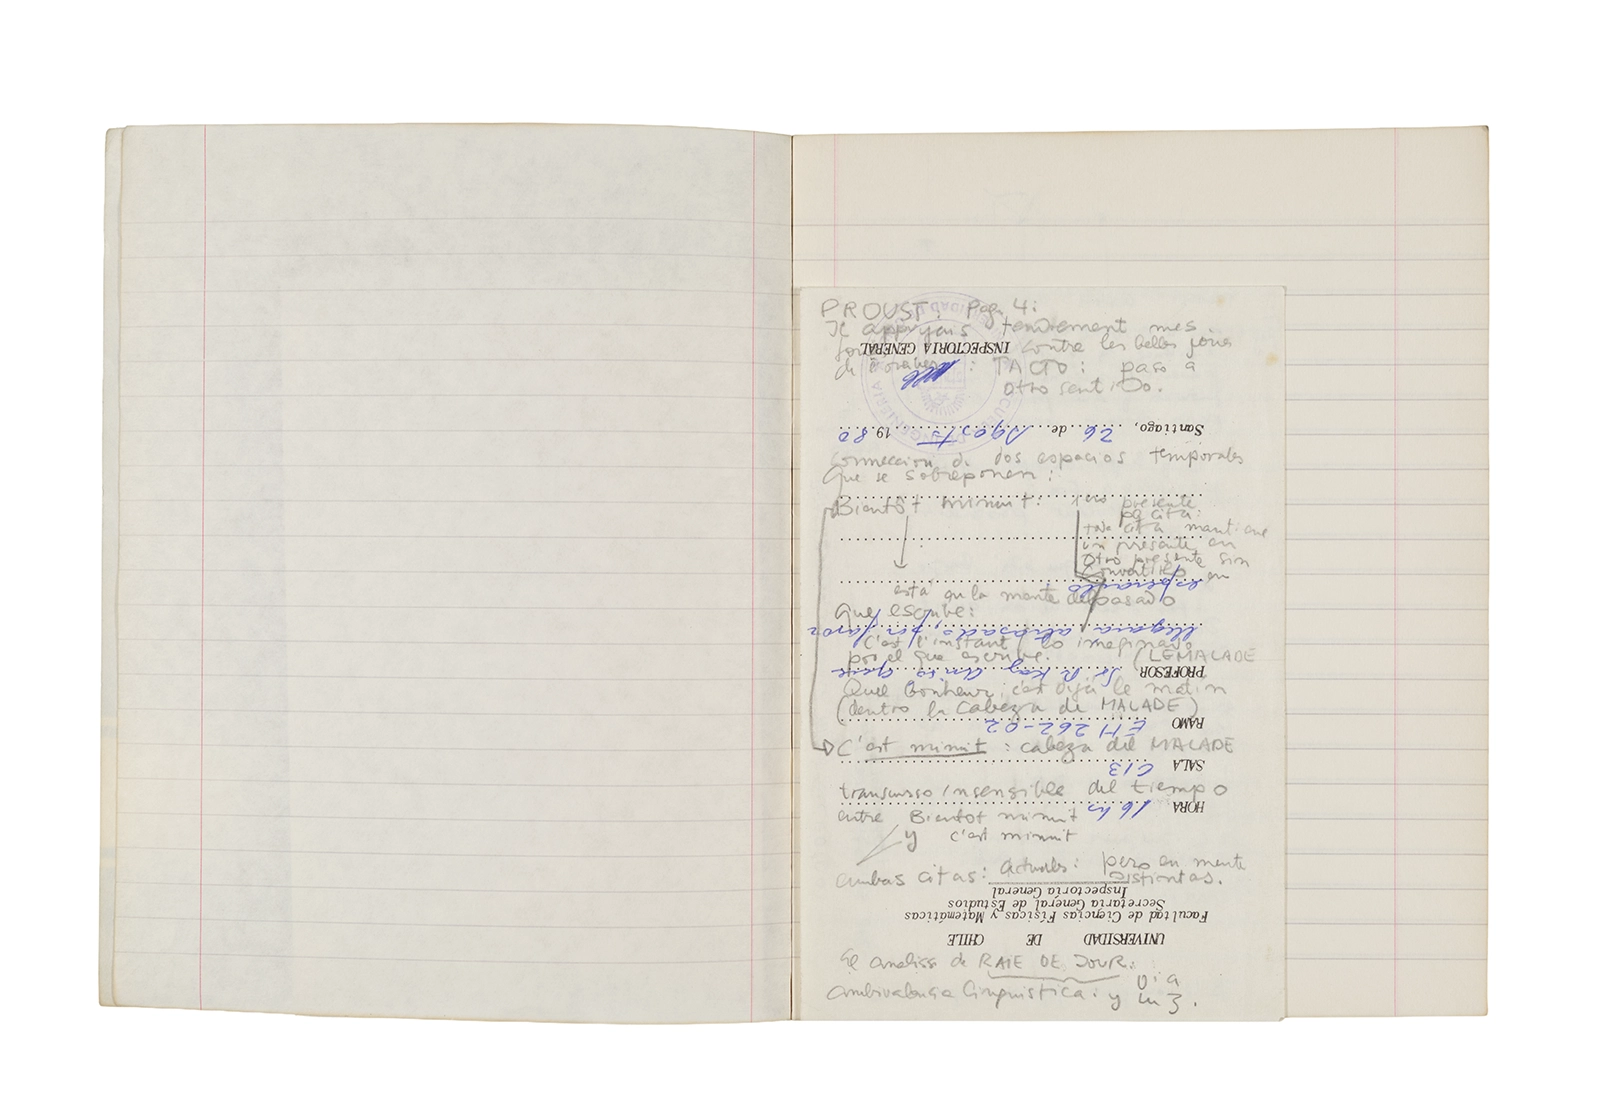 PROUST: Pag. 4:
Je appuyais tendrement mes
contre les belles joues
de : TACTO: paso a
otro sentido.
connección de dos espacios temporales
que se sobreponen:
Bientôt minuit: 1ero presente
pq cita:
toda cita mantiene
un presente en
otro presente sin
convertirlo en
está en la mente del pasado
que escribe:
C'est l'instant / lo imaginado
por el que escribe. (LE MALADE
Quel bonheur, c'est déjà le matin
(dentro la cabeza de MALADE)
C'est minuit: cabeza del MALADE
transcurso insensible del tiempo
entre Bientot minuit
y c'est minuit
ambas citas: actuales: pero en mente
distintas.
El analisis de RAIE DE JOUR:
ambivalencia linguistica: día
y luz.
UNIVERSIDAD DE CHILE
Facultad de Ciencias Físicas y Matemáticas
Secretaría General de Estudios
Inspectoría General
HORA 16 hs
SALA C13
RAMO EH 262-02
PROFESOR Sr R. Kay que
llegará atrasado, por favor
esperarlo
Santiago, 26 de Agosto 1980
INSPECTORIA GENERAL